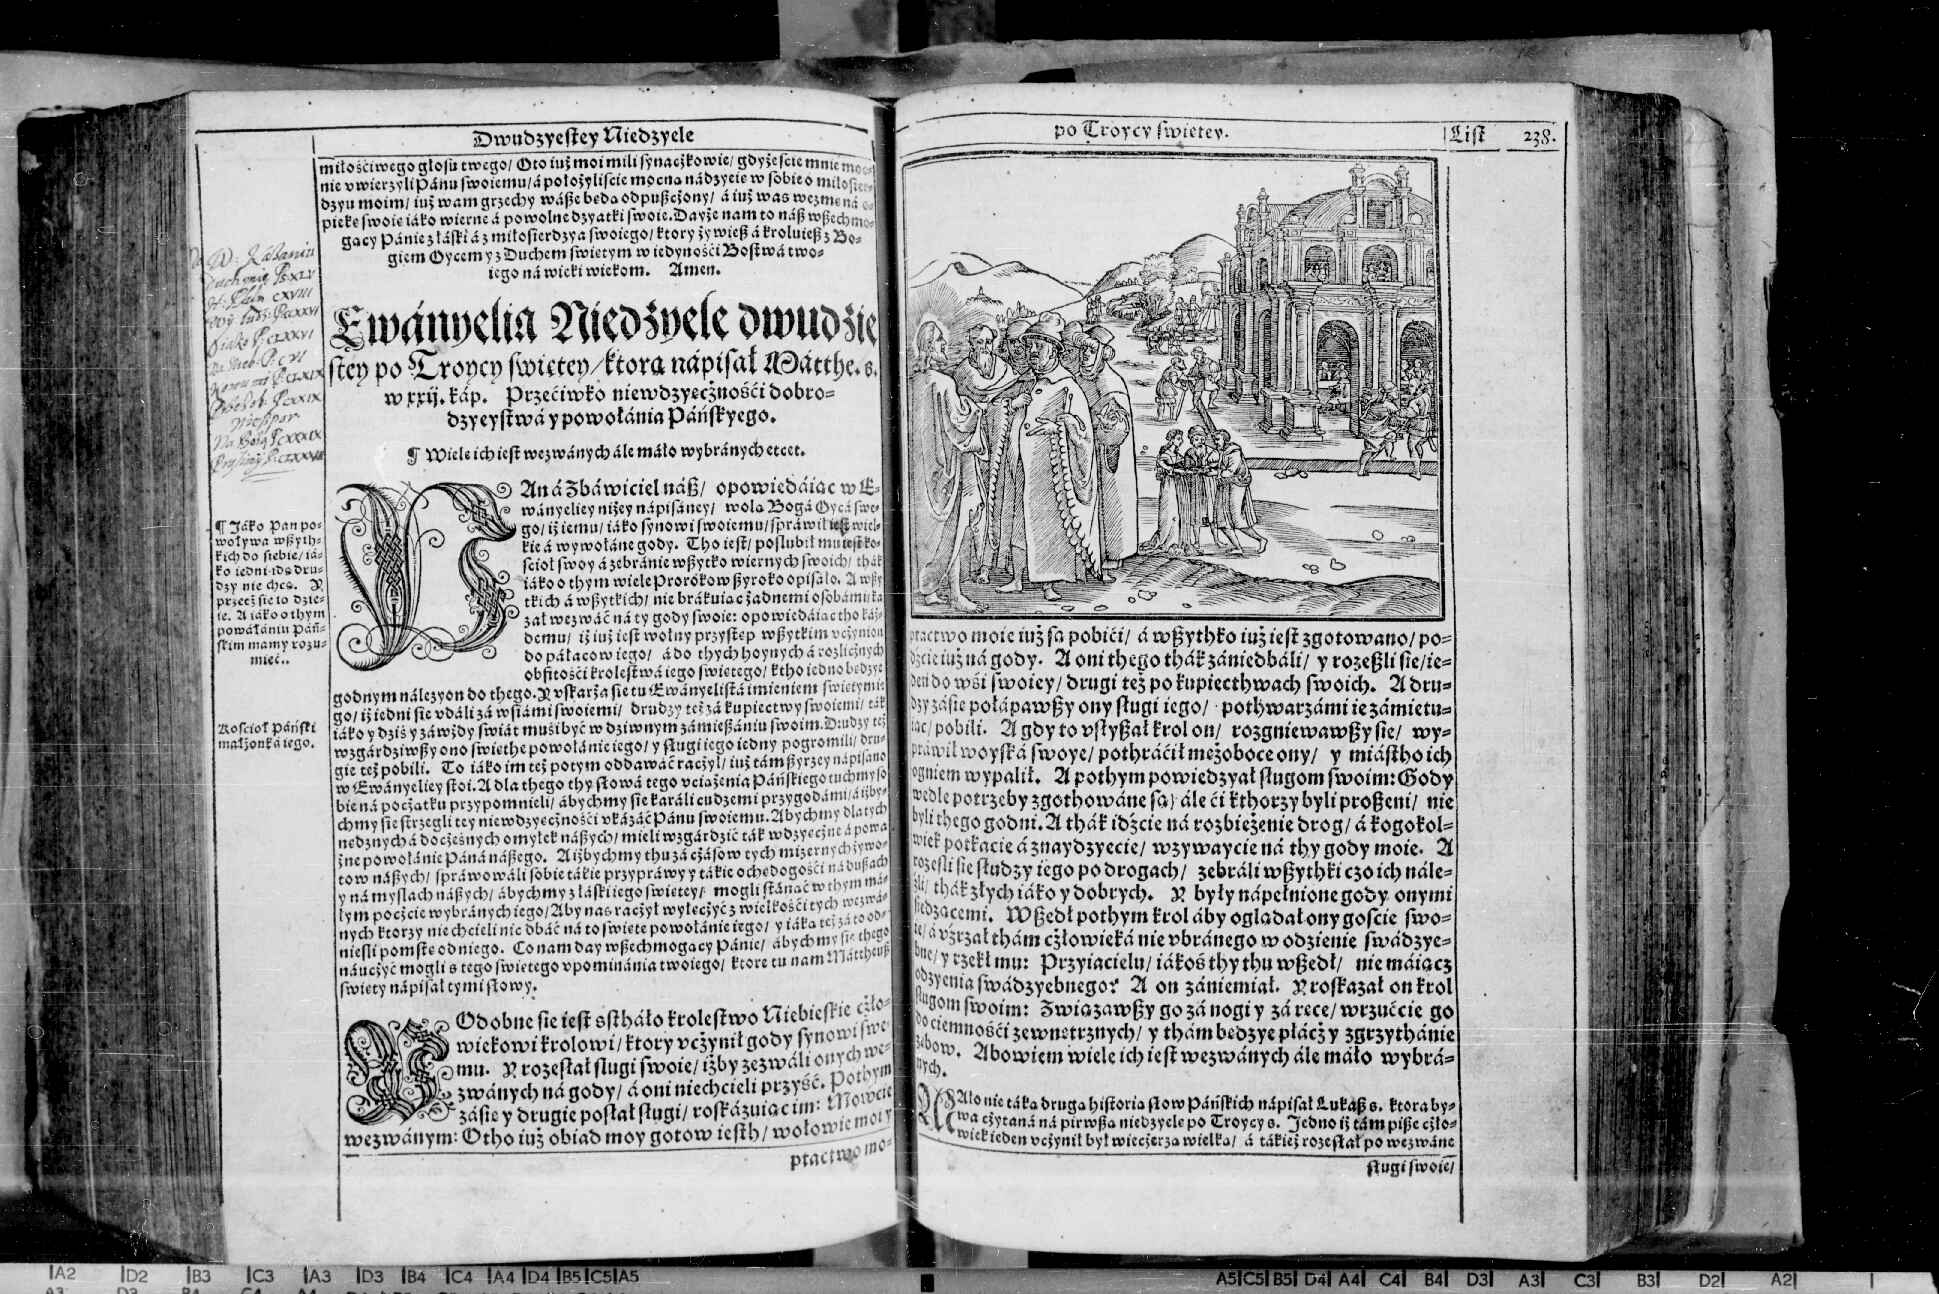 Dwudzyestey Niedzyele
miłośćiwego głosu twego/ Oto iuż moi mili synaczkowie/ gdyżeście mnie moc-
nie vwierzyli Pánu swoiemu/ á położyliście mocną nádzyeię w sobie o miłosier-
dzyu moim/ iuż wam grzechy wáße będą odpußczony/ á iuż was wezmę ná o-
piekę swoię iáko wierne á powolne dzyatki swoie. Dayże nam to náß wßechmo-
gący Pánie z łáski á z miłosierdzya swoiego/ ktory żywieß á kroluieß z Bo-
giem Oycem y z Duchem swiętym w iedynośći Bostwá two-
iego ná wieki wiekom. Amen.
Ewányelia Niedzyele dwudzie
stey po Troycy swiętey/ ktorą nápisał Mátthe. s.
w xxij. káp. Przećiwko niewdzyęcżnośći dobro-
dzyeystwá y powołánia Páńskyego.
¶ Wiele ich iest wezwánych ále máło wybránych etcet.
¶ Jáko Pan po-
woływa wßyth-
kich do siebie/ iá-
ko iedni idą dru-
dzy nie chcą. Y
przecż sie to dzie-
ie. A iáko o thym
powáłániu Páń-
skim mamy rozu-
mieć..
Kosćioł Páński
małżonká iego.
PAn á Zbáwićiel náß/ opowiedáiąc w E-
wányeliey niżey nápisáney/ wolą Bogá Oycá swe-
go/ iż iemu/ iáko synowi swoiemu/ spráwił iest wiel-
kie á wywołáne gody. Tho iest/ poślubił mu iest ko-
śćioł swoy á zebránie wßytko wiernych swoich/ thák
iáko o thym wiele Prorokow ßyroko opisáło. A wßy
tkich á wßytkich/ nie brákuiąc żadnemi osobámi ká
zał wezwáć ná ty gody swoie: opowiedáiąc tho káż-
demu/ iż iuż iest wolny przystęp wßytkim vcżynion
do páłacow iego/ á do thych hoynych á rozlicżnych
obfitośći krolestwá iego swiętego/ ktho iedno będzye
godnym nálezyon do thego. Y vskarża sie tu Ewányelistá imieniem swiętym ie-
go/ iż iedni sie vdáli zá wsiámi swoiemi/ drudzy też zá kupiectwy swoiemi/ ták
iáko y dziś y záwżdy swiát muśi być w dziwnym zámießániu swoim. Drudzy też
wzgárdziwßy ono swięthe powołánie iego/ y sługi iego iedny pogromili/ dru-
gie też pobili. To iáko im też potym oddawáć racżył/ iuż tám ßyrzey nápisano
w Ewányeliey stoi. A dla thego thy słowá tego vciążenia Páńskiego tuchmy so
bie ná pocżątku przypomnieli/ ábychmy sie karáli cudzemi przygodámi/ á iżby-
chmy sie strzegli tey niewdzyęcżnośći vkázáć Pánu swoiemu. Abychmy dla tych
nędznych á docżesnych omyłek náßych/ mieli wzgárdzić ták wdzyęcżne á powa
żne powołánie Páná náßego. A iżbychmy thu zá cżásow tych mizernych żywo-
tow náßych/ spráwowáli sobie tákie przypráwy y tákie ochędogośći ná dußach
y ná myslach náßych/ ábychmy z łáski iego swiętey/ mogli stánąć w thym má-
łym pocżcie wybránych iego/ Aby nas racżył wyłecżyć z wielkośći tych wezwá-
nych ktorzy nie chcieli nic dbáć ná to swięte powołánie iego/ y iáką też zá to od-
nieśli pomstę od niego. Co nam day wßechmogący Pánie/ ábychmy sie thego
náucżyć mogli s tego swiętego vpominánia twoiego/ ktore tu nam Máttheuß
swięty nápisał tymi słowy.
POdobne sie iest ssthało krolestwo Niebieskie cżło-
wiekowi krolowi/ ktory vcżynił gody synowi swe-
mu. Y rozesłał sługi swoie/ iżby zezwáli onych we-
zwánych ná gody/ á oni nie chcieli przyść. Pothym
zásię y drugie posłał sługi/ roskázuiąc im: Mowcie
wezwánym: Otho iuż obiad moy gotow iesth/ wołowie moi y
ptactwo mo-
po Troycy swiętey.
List 238.
ptactwo moie iuż są pobići/ á wßythko iuż iest zgotowano/ po-
dźcie iuż ná gody. A oni thego thák zániedbáli/ y rozeßli sie/ ie-
den do wśi swoiey/ drugi też po kupiecthwach swoich. A dru-
dzy zásię połápawßy ony sługi iego/ pothwarzámi ie zámietu-
iąc/ pobili. A gdy to vsłyßał krol on/ rozgniewawßy sie/ wy-
práwił woyská swoye/ pothráćił mężoboce ony/ y miástho ich
ogniem wypalił. A pothym powiedzyał sługom swoim: Gody
wedle potrzeby zgothowáne są/ ále ći kthorzy byli proßeni/ nie
byli thego godni. A thák idźcie ná rozbieżenie drog/ á kogokol-
wiek potkacie á znaydzyecie/ wzywaycie ná thy gody moie. A
rozeßli sie słudzy iego po drogach/ zebráli wßythki czo ich nále-
źli/ thák złych iáko y dobrych. Y były nápełnione gody onymi
siedzącemi. Wßedł pothym krol áby oglądał ony goscie swo-
ie/ á vźrzał thám człowieká nie vbránego w odzienie swádzye-
bne/ y rzekł mu: Przyiacielu/ iákoś thy thu wßedł/ nie máiącz
odzyenia swádzyebnego? A on zániemiał. Y roskazał on krol
sługom swoim: Związawßy go zá nogi y zá ręce/ wrzućcie go
do ciemnośći zewnętrznych/ y thám będzye płácż y zgrzythánie
zębow. Abowiem wiele ich iest wezwánych ále máło wybrá-
nych.
MAło nie táka druga historia słow Páńskich nápisał Lukaß s. ktora by-
wa cżytaná ná pirwßą niedzyelę po Troycy s. Jedno iż tám piße cżło-
wiek ieden vcżynił był wiecżerzą wielką/ á tákież rozesłał po wezwáne
sługi swoie/
A2 D2 B3 C3 A3 D3 B4 C4 A4 D4 B5 C5 A5
A5 C5 B5 D4 A4 C4 B4 D3 A3 C3 B3 D2 A2